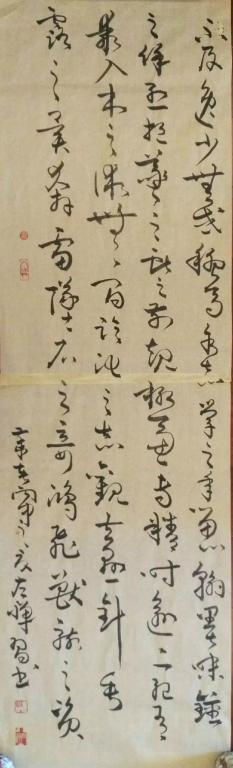 不及逸少無或疑焉余志學之年留心翰墨味鍾
之餘烈挹羲獻之前規極慮專精時逾二紀有
乖入木之術無間臨池之志觀夫懸針垂
露之異奔雷墜石之奇鴻飛獸駭之資
習書